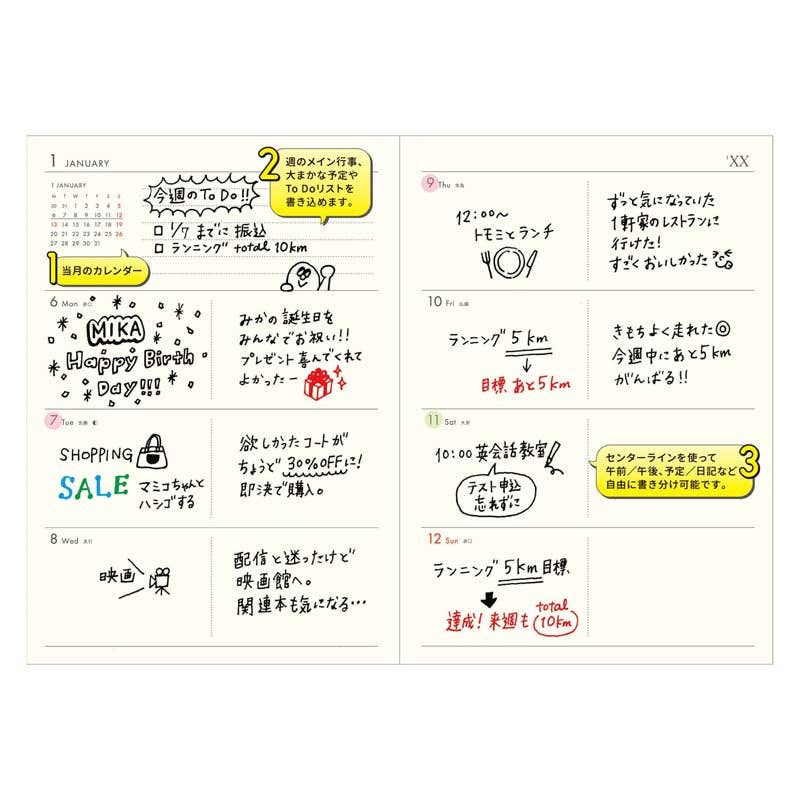 1 JANUARY
1 JANUARY
M T W T F S S
30 31 1 2 3 4 5
6 7 8 9 10 11 12
13 14 15 16 17 18 19
20 21 22 23 24 25 26
27 28 29 30 31
今週のToDo!!
□ 1/7 までに 振込
□ ランニング total 10km
2 週のメイン行事、
大まかな予定や
To Doリストを
書き込めます。
1 当月のカレンダー
6 Mon 赤口
MIKA
Happy Birth
Day!!!
みかの誕生日を
みんなでお祝い!!
プレゼント喜んでくれて
よかったー
7 Tue 先勝
SHOPPING
SALE マミコちゃんと
ハシゴする
欲しかったコートが
ちょうど30%OFFに!
即決で購入。
8 Wed 友引
映画
配信と迷ったけど
映画館へ。
関連本も気になる…
'XX
9 Thu 先負
12:00〜
トモミとランチ
ずっと気になっていた
1軒家のレストランに
行けた!
すごくおいしかった
10 Fri 仏滅
ランニング 5km
↓
目標 あと5km
きもちよく走れた◎
今週中にあと5km
がんばる!!
11 Sat 大安
10:00 英会話教室
テスト申込
忘れずに
センターラインを使って
午前/午後、予定/日記など
自由に書き分け可能です。 3
12 Sun 赤口
ランニング 5km 目標
↓
達成! 来週も total 10km